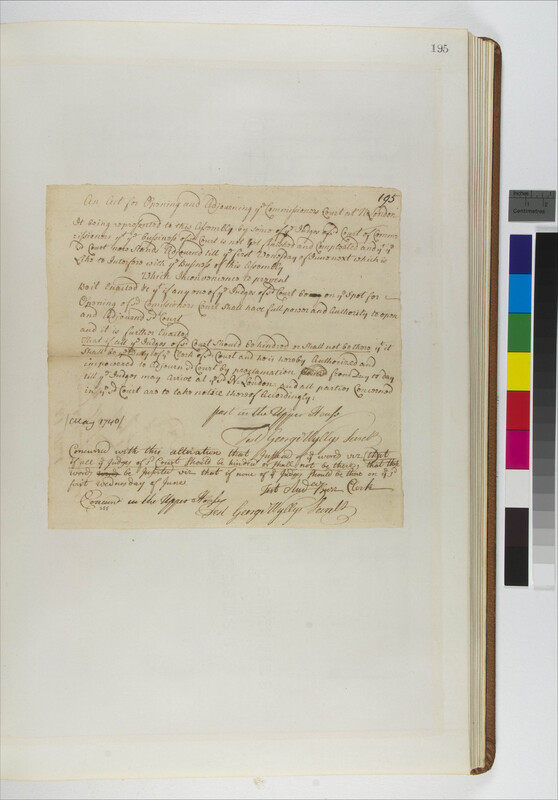 195
195
An Act for Opening and Adjourning ye Commissioners Court at N London
It being represented to this Assembly by some of ye Judges of sd Court of Commi
issioners yt ye business of sd Court is not yet finished and Compleated and yt ye
sd Court now Stands Adjourned till ye first Wensday of June next which is
like to Interfere with ye business of this Assembly
Which Inconvenience to prevent
Be it Enacted &c yt if any one of ye Judges of sd Court be on ye Spot for
Opening of sd Commissioners Court Shall have full power and Authority to open
and Adjourn sd Court
and it is further Enacted
That if all ye Judges of sd Court Should be hindred or Shall not be there yt it
Shall be by ye Clerk of sd Court and he is hereby Authorized and
impowered to Adjourn sd Court by proclamation from Day to Day
till ye Judges may arrive at ye sd N. London and all parties Concerned
in sd Court are to take notice thereof Accordingly.
(May 1740)
past in the Upper House
Test George Wyllys Secret
Concurred with this alteration that instead of ye words viz (that
if all ye Judges of sd Court should be hindred or shall not be there) that the
words be putt in viz that if none of ye Judges should be there on ye sd
first Wednesday of June
Test And Burr Clerk
Concurrd in the Upper House
Test George Wyllys Secret